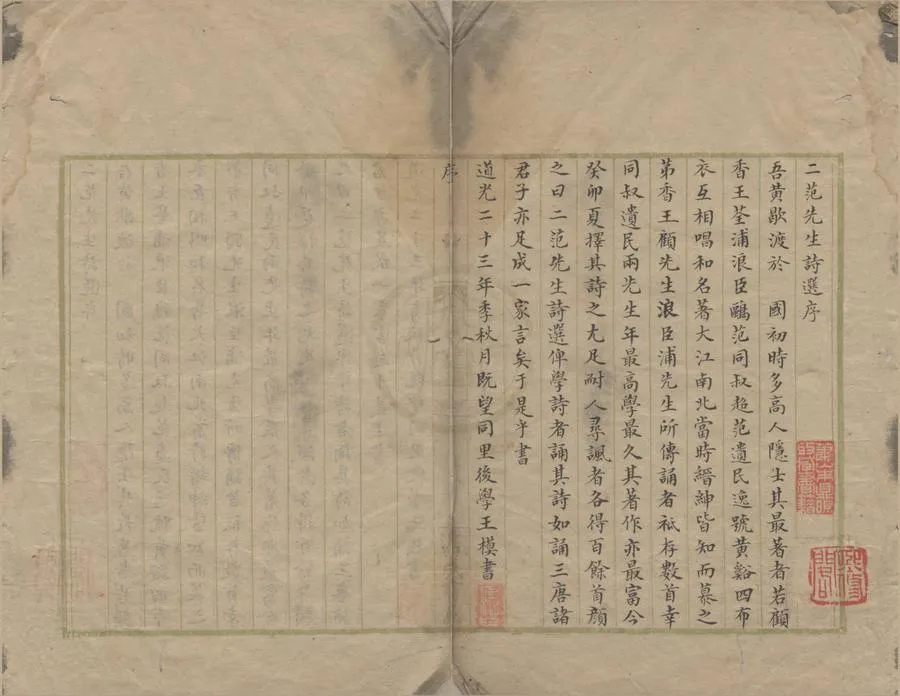 二范先生詩選序
吾黃歇渡於 國初時多高人隱士其最著者若顧
香王荃浦浪臣鷗范同叔超范遺民逸號黃谿四布
衣互相唱和名著大江南北當時縉紳皆知而慕之
第香王顧先生浪臣浦先生所傳誦者祗存數首幸
同叔遺民兩先生年最高學最久其著作亦最富今
癸卯夏擇其詩之尤足耐人尋諷者各得百餘首顏
之曰二范先生詩選俾學詩者誦其詩如誦三唐諸
君子亦足成一家言矣于是乎書
道光二十三年季秋月既望同里後學王模書
序